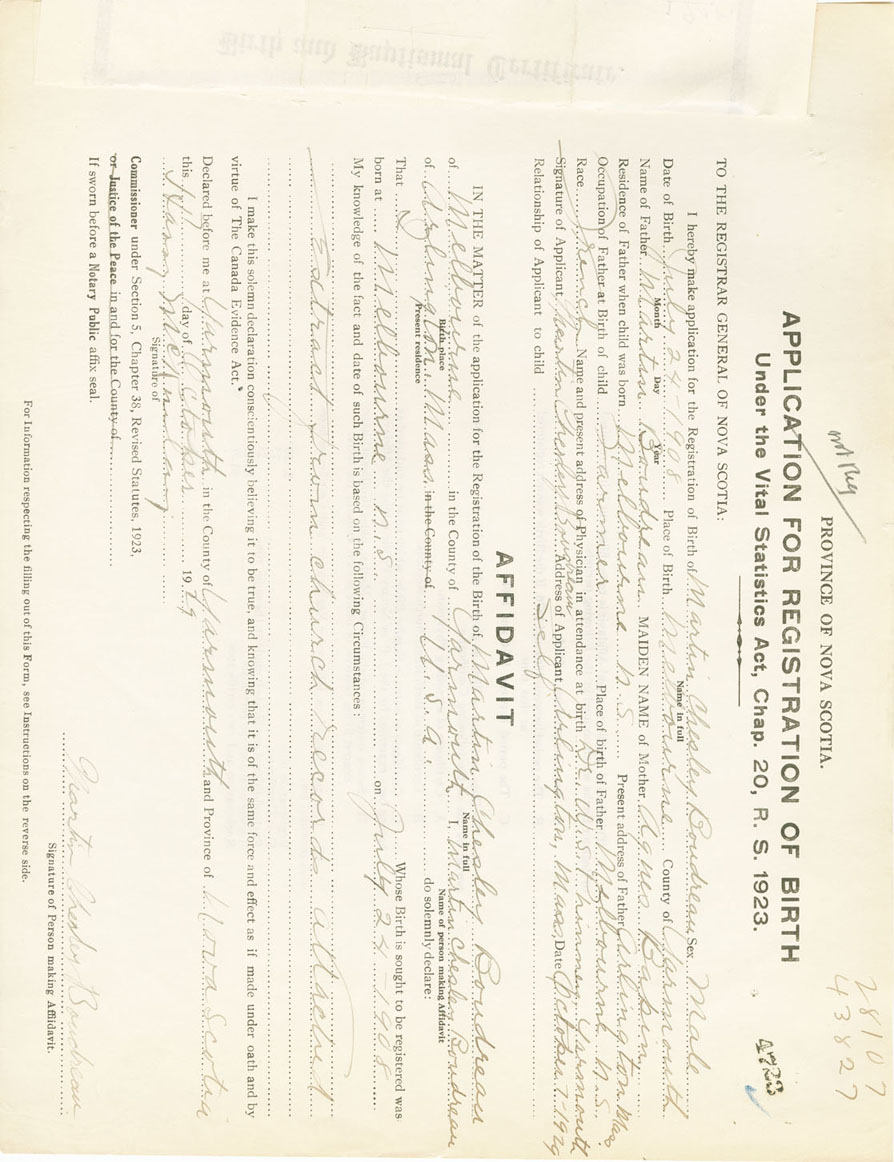 PROVINCE OF NOVA SCOTIA.
28107
43827
not reg
APPLICATION FOR REGISTRATION OF BIRTH
Under the Vital Statistics Act, Chap. 20, R. S. 1923.
4723
TO THE REGISTRAR GENERAL OF NOVA SCOTIA:
I hereby make application for the Registration of Birth of Martin Chesley Boudreau Sex Male
Name in full
Date of Birth July 24-1908 Place of Birth Melbourne County of Yarmouth
Month Day Year
Name of Father Martin Boudreau MAIDEN NAME of Mother Agnes Babin
Residence of Father when child was born Melbourne N.S. Present address of Father Arlington Mass
Occupation of Father at Birth of child Farmer Place of birth of Father Melbourne N.S.
Race French Name and present address of Physician in attendance at birth Dr. W.S. Yarmouth
Signature of Applicant Martin Chesley Boudreau Address of Applicant Arlington, Mass Date October 7-1929
Relationship of Applicant to child Self
AFFIDAVIT
IN THE MATTER of the application for the Registration of the Birth of Martin Chesley Boudreau
Name in full
of Melbourne in the County of Yarmouth I, Martin Chesley Boudreau
Birth place Name of person making Affidavit
of Arlington, Mass in the County of U.S.A. do solemnly declare:
Present residence
That I Whose Birth is sought to be registered was
born at Melbourne N.S. on July 24-1908
My knowledge of the fact and date of such Birth is based on the following Circumstances:
Extract from church records attached
I make this solemn declaration conscientiously believing it to be true, and knowing that it is of the same force and effect as if made under oath and by
virtue of The Canada Evidence Act.
Declared before me at Yarmouth in the County of Yarmouth and Province of Nova Scotia
this 7th day of October 1929
Signature of
Martin Chesley Boudreau
Signature of Person making Affidavit.
Commissioner under Section 5, Chapter 38, Revised Statutes, 1923,
or Justice of the Peace in and for the County of
If sworn before a Notary Public affix seal.
For Information respecting the filling out of this Form, see Instructions on the reverse side.
Birth and Baptismal Certificate